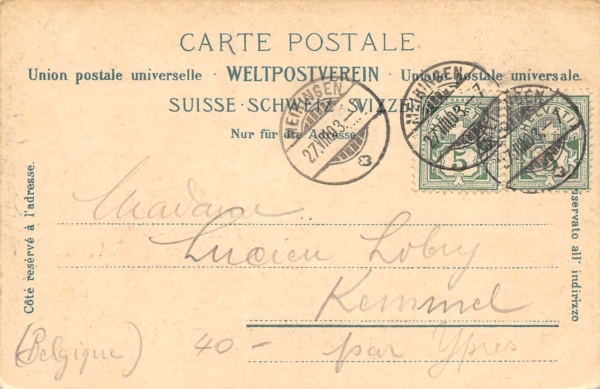 CARTE POSTALE
Union postale universelle · WELTPOSTVEREIN · Unione postale universale.
SUISSE · SCHWEIZ · SVIZZERA
Nur für die Adresse.
MEIRINGEN
27.VIII.03.
MEIRINGEN
27.VIII.03.-7
MEIRINGEN
27.VIII.03.
5
HELVETIA
Côté reservé à l'adresse.
riservato all' indirizzo
Madame
Lucien Lobry
Kemmel
par Ypres
(Belgique)
40-